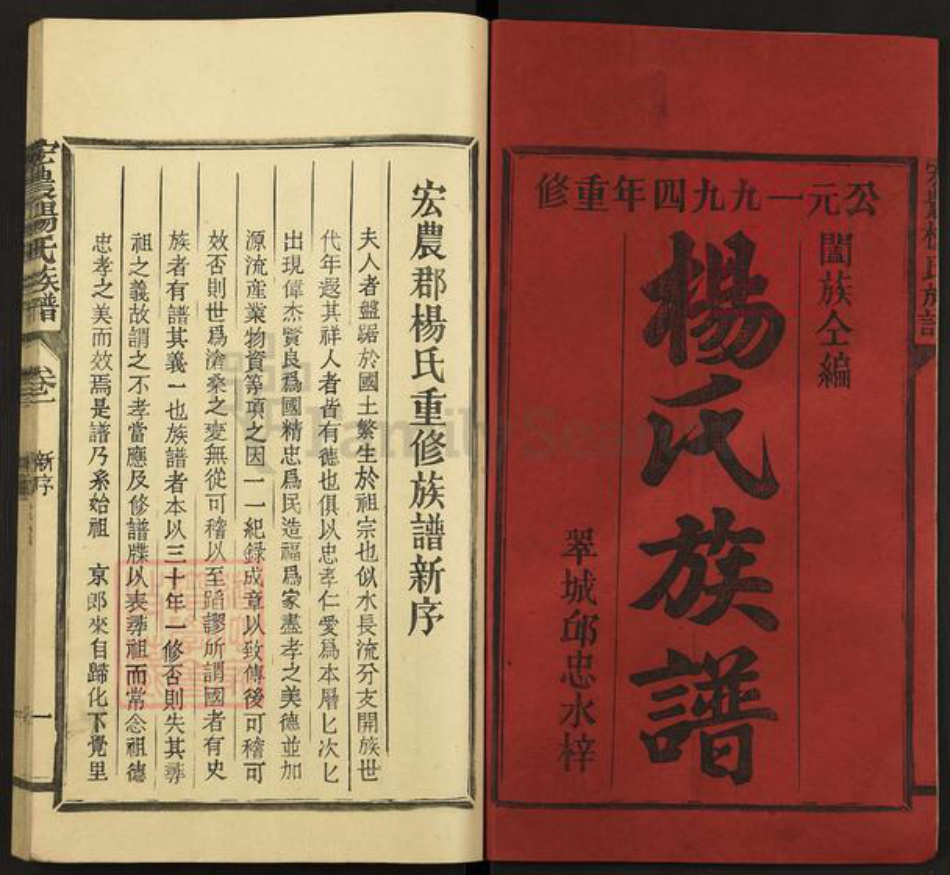 公元一九九四年重修
闔族仝編
楊氏族譜
翠城邱忠水梓
宏農郡楊氏重修族譜新序
夫人者盤踞於國土繁生於祖宗也似水長流分支開族世
代年遐其祥人者皆有德也俱以忠孝仁愛爲本層匕次匕
出現偉杰賢良爲國精忠爲民造福爲家盡孝之美德並加
源流産業物資等項之因一一紀録成章以致傳後可稽可
效否則世爲滄桑之变無從可稽以至蹈謬所謂國者有史
族者有譜其義一也族譜者本以三十年一修否則失其尋
祖之義故謂之不孝當應及修譜牒以表尋祖而常念祖德
忠孝之美而效焉是譜乃系始祖 京郎來自歸化下覺里
宏農楊氏族譜
卷一
新序
一
FamilySearch